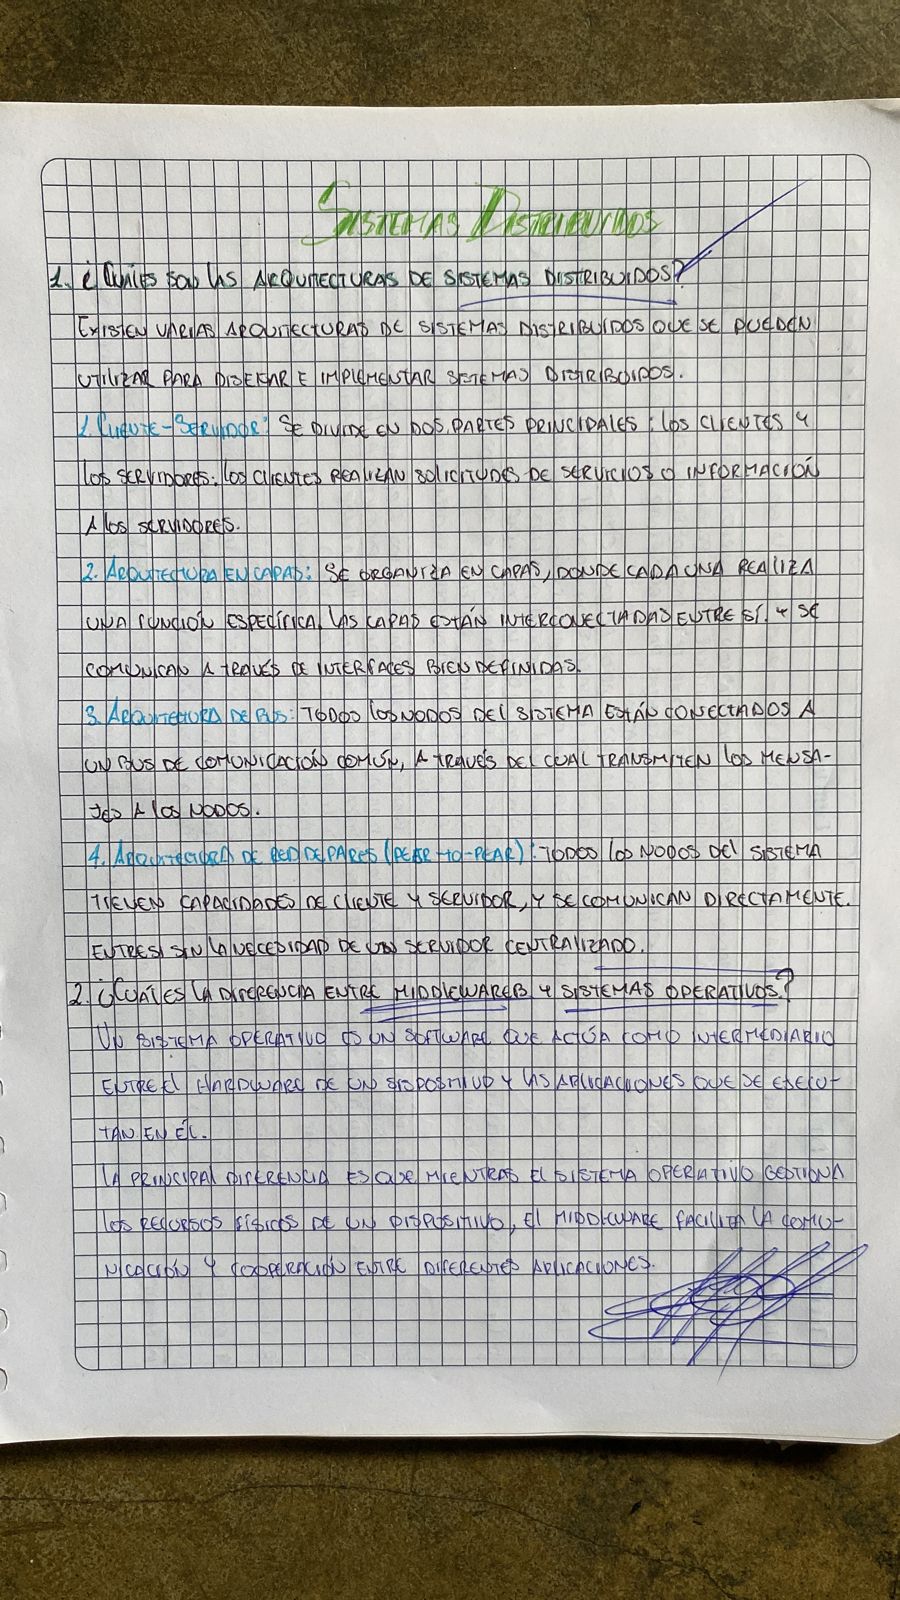 SISTEMAS DISTRIBUIDOS
1. ¿CUÁLES SON LAS ARQUITECTURAS DE SISTEMAS DISTRIBUIDOS?
EXISTEN VARIAS ARQUITECTURAS DE SISTEMAS DISTRIBUIDOS QUE SE PUEDEN
UTILIZAR PARA DISEÑAR E IMPLEMENTAR SISTEMAS DISTRIBUIDOS.
1. CLIENTE-SERVIDOR: SE DIVIDE EN DOS PARTES PRINCIPALES: LOS CLIENTES Y
LOS SERVIDORES. LOS CLIENTES REALIZAN SOLICITUDES DE SERVICIOS O INFORMACIÓN
A LOS SERVIDORES.
2. ARQUITECTURA EN CAPAS: SE ORGANIZA EN CAPAS, DONDE CADA UNA REALIZA
UNA FUNCIÓN ESPECÍFICA. LAS CAPAS ESTÁN INTERCONECTADAS ENTRE SÍ Y SE
COMUNICAN A TRAVÉS DE INTERFACES BIEN DEFINIDAS.
3. ARQUITECTURA DE BUS: TODOS LOS NODOS DEL SISTEMA ESTÁN CONECTADOS A
UN BUS DE COMUNICACIÓN COMÚN, A TRAVÉS DEL CUAL TRANSMITEN LOS MENSA-
JES A LOS NODOS.
4. ARQUITECTURA DE RED DE PARES (PEAR-TO-PEAR): TODOS LOS NODOS DEL SISTEMA
TIENEN CAPACIDADES DE CLIENTE Y SERVIDOR, Y SE COMUNICAN DIRECTAMENTE
ENTRE SI SIN LA NECESIDAD DE UN SERVIDOR CENTRALIZADO.
2. ¿CUÁL ES LA DIFERENCIA ENTRE MIDDLEWARES Y SISTEMAS OPERATIVOS?
UN SISTEMA OPERATIVO ES UN SOFTWARE QUE ACTÚA COMO INTERMEDIARIO
ENTRE EL HARDWARE DE UN DISPOSITIVO Y LAS APLICACIONES QUE SE EJECU-
TAN EN ÉL.
LA PRINCIPAL DIFERENCIA ES QUE MIENTRAS EL SISTEMA OPERATIVO GESTIONA
LOS RECURSOS FÍSICOS DE UN DISPOSITIVO, EL MIDDLEWARE FACILITA LA COMU-
NICACIÓN Y COOPERACIÓN ENTRE DIFERENTES APLICACIONES.